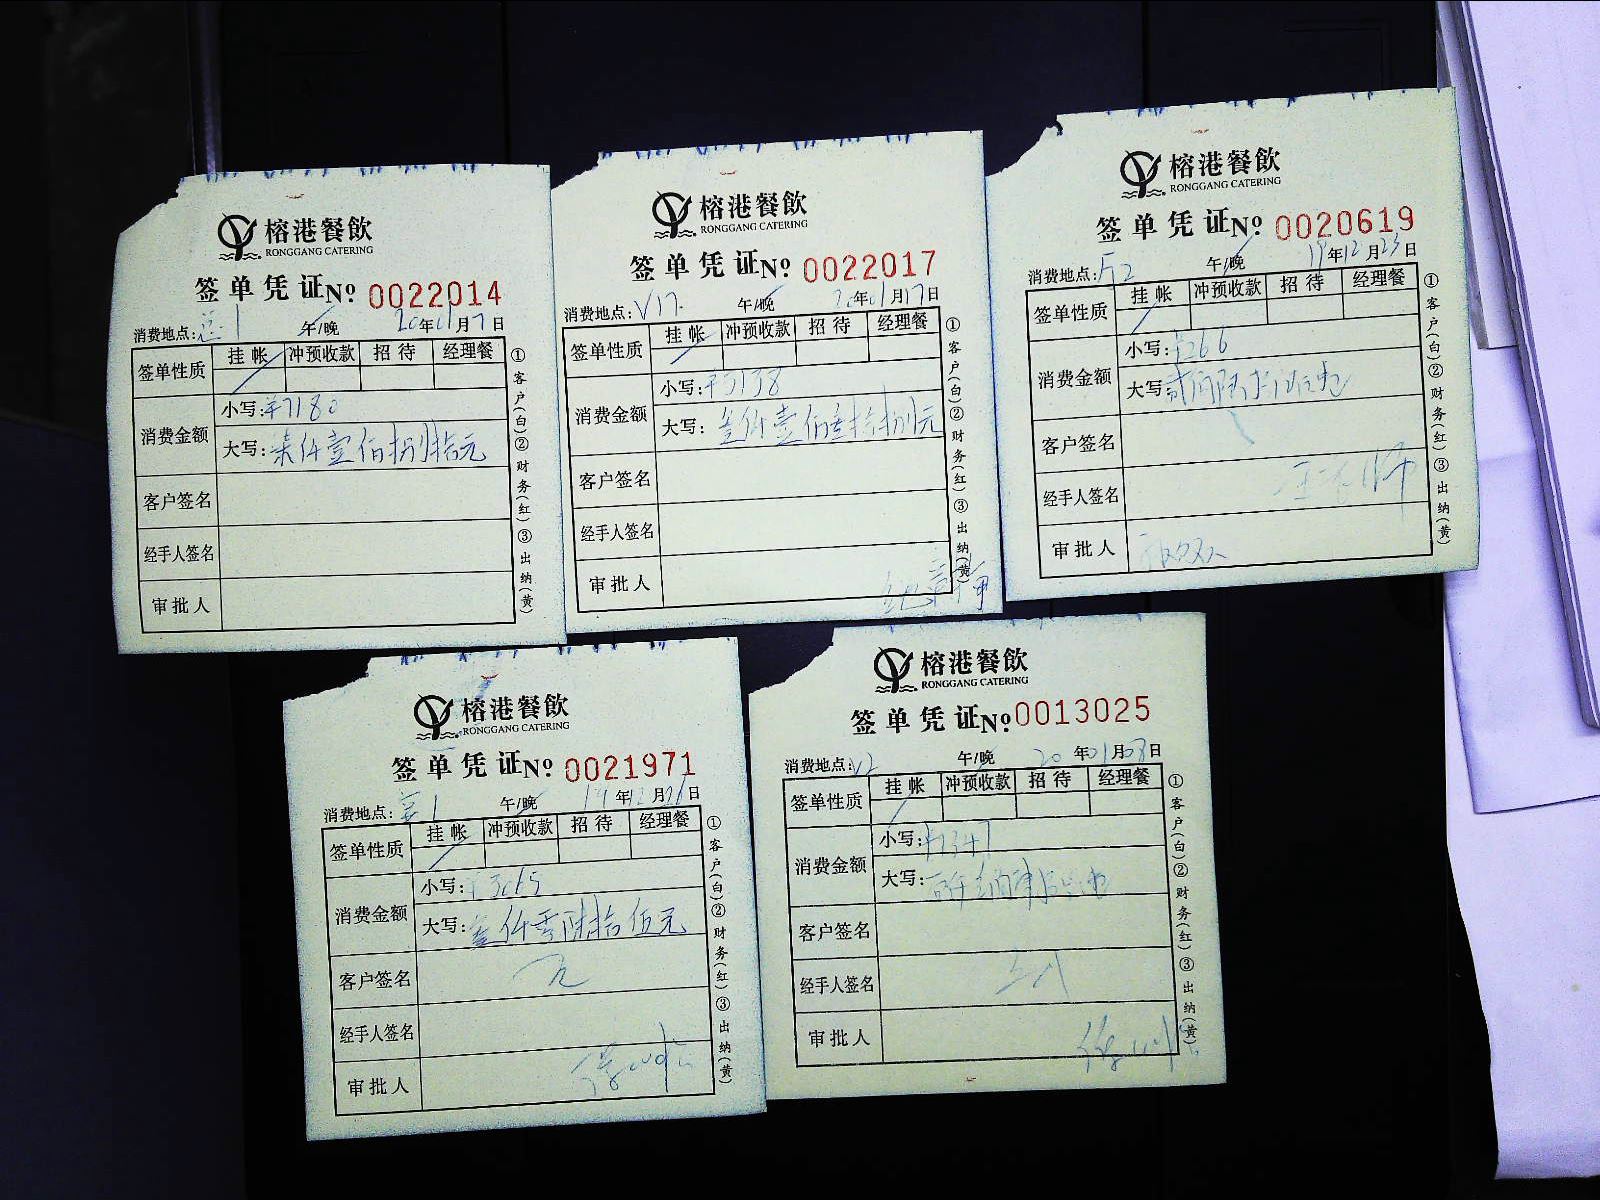 榕港餐飲
RONGGANG CATERING
签单凭证№ 0022014
消费地点: 总1 午/晚 20年01月7日
签单性质 挂帐 冲预收款 招待 经理餐
消费金额 小写:¥7180
大写:柒仟壹佰捌拾元
客户签名
经手人签名
审批人
①客户(白)②财务(红)③出纳(黄)
榕港餐飲
RONGGANG CATERING
签单凭证№ 0022017
消费地点: V17. 午/晚 20年01月17日
签单性质 挂帐 冲预收款 招待 经理餐
消费金额 小写:¥3138
大写:叁仟壹佰叁拾捌元
客户签名
经手人签名
审批人
①客户(白)②财务(红)③出纳(黄)
榕港餐飲
RONGGANG CATERING
签单凭证№ 0020619
消费地点: 午/晚 19年12月23日
签单性质 挂帐 冲预收款 招待 经理餐
消费金额 小写: 266
大写:
客户签名
经手人签名
审批人
①客户(白)②财务(红)③出纳(黄)
榕港餐飲
RONGGANG CATERING
签单凭证№ 0021971
消费地点: 午/晚 19年12月26日
签单性质 挂帐 冲预收款 招待 经理餐
消费金额 小写:¥3065
大写:叁仟零陆拾伍元
客户签名
经手人签名
审批人
①客户(白)②财务(红)③出纳(黄)
榕港餐飲
RONGGANG CATERING
签单凭证№ 0013025
消费地点: V2 午/晚 20年01月08日
签单性质 挂帐 冲预收款 招待 经理餐
消费金额 小写:
大写:
客户签名
经手人签名
审批人
①客户(白)②财务(红)③出纳(黄)